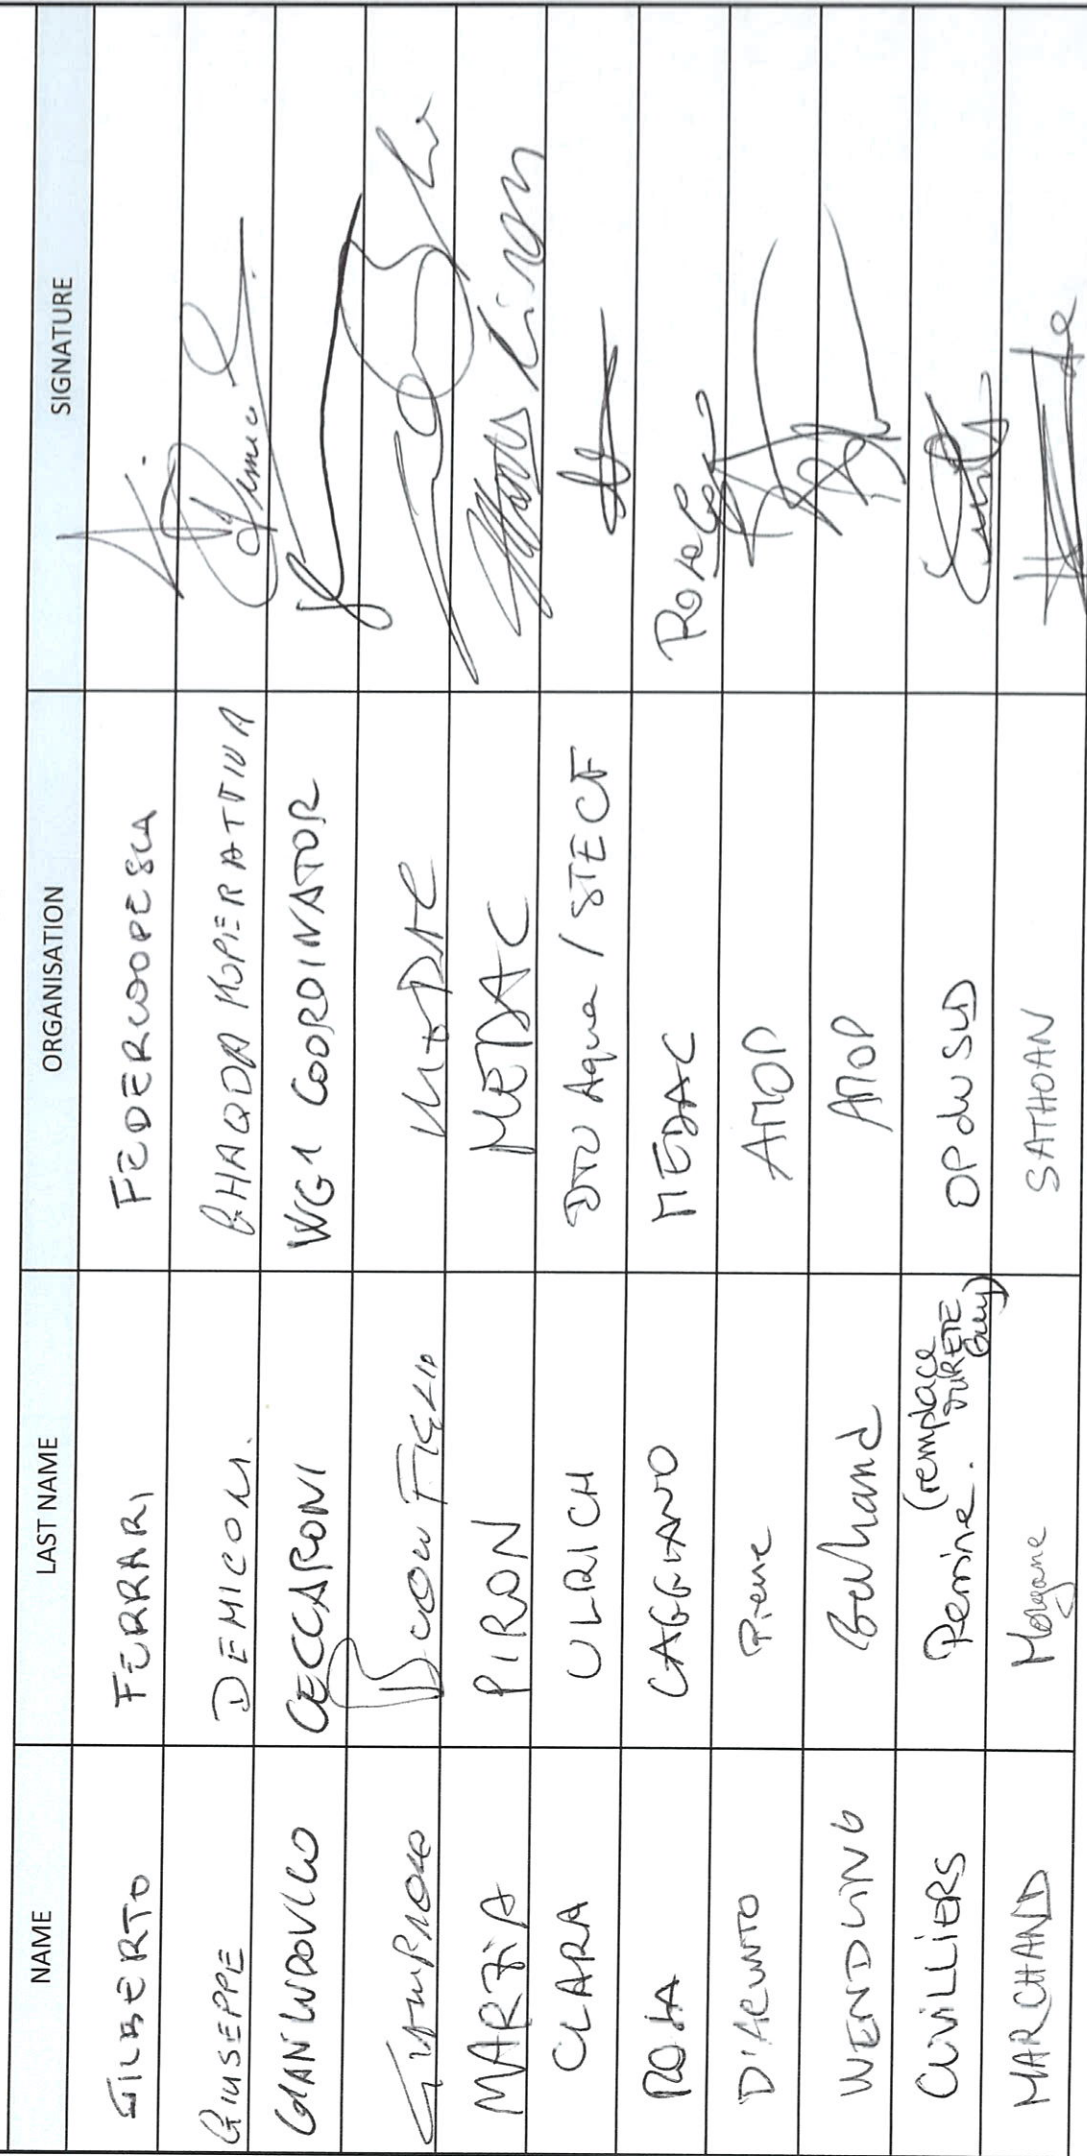 NAME LAST NAME ORGANISATION SIGNATURE
GILBERTO FERRARI FEDERCOOPESCA
GIUSEPPE DEMICOLI GHAQDA KOPERATTIVA
GIANLUDOVICO CECCARONI WG1 COORDINATOR
BUONFIGLIO MEDAC
MARZIA PIRON MEDAC Marzia Piron
CLARA ULRICH DTU Aqua / STECF
ROSA CAGGIANO MEDAC Rosa Cagg
D'ACUNTO Pierre AMOP
WENDLING Bertrand AMOP
CUVILLIERS Perrine. (remplace DURETE Guy) OP du SUD
MARCHAND Morgane SATHOAN